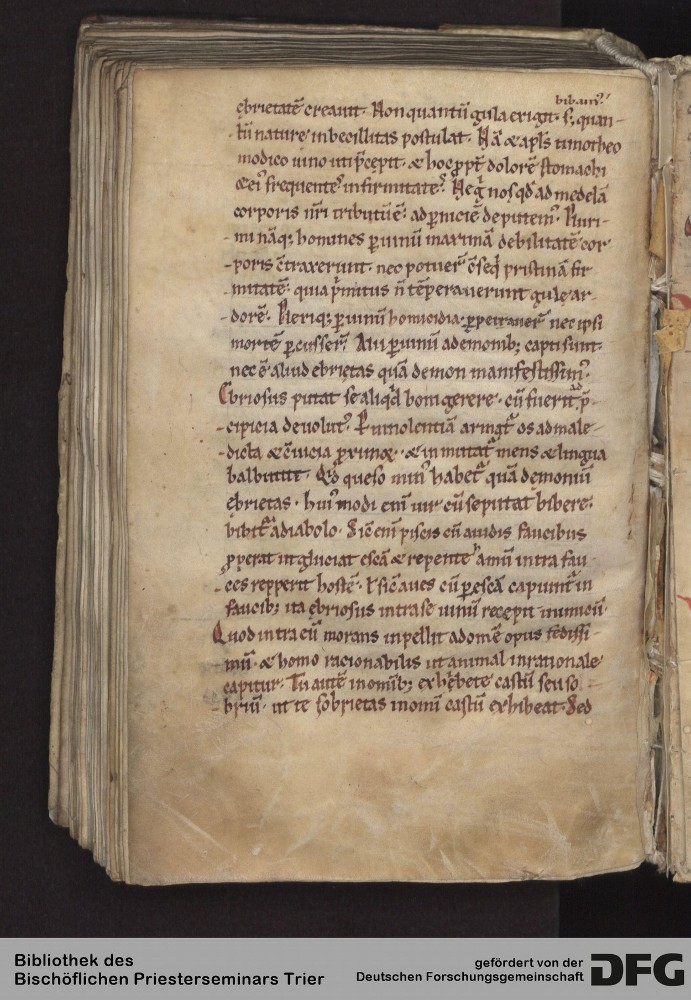 bibam᷒
ębrietatē creauit. Non quantū gula exigit. s; quan-
tū naturę inbecillitas postulat. Nā & apl's timotheo
modico uino uti p̄cepit. & hoc ꝓpt̄ dolorē stomachi
& ei᷒ frequentes infirmitates. Neq nos qd ad medelā
corporis nr̄i tributū ē. ad ꝑniciē deputem᷒. Pluri-
mi nāq; homines ꝑ uinū maximā debilitatē cor-
poris c̄traxerunt. nec potuer̄ c̄seq̇ pristinā fir
mitatē. quia p̄mitus n̄ tēperauerunt gulę ar-
dorē. Pleriq; ꝑ uinū homicidia ꝑpetrauer̄ nec ipsi
mortē ꝑcusser̄. Alii ꝑ uinū a demonib; capti sunt.
nec ē aliud ebrietas quā demon manifestissim᷒.
Ebriosus putat se aliqd boni gerere. cū fuerit p̄-
cipicia deuolut᷒. P uinolentiā
dicta & c̄uicia & inmutat mens & lingua
balbutit. Qd queso min᷒ habet quā demoniū
ębrietas. hui᷒modi eni uir cū se putat bibere.
bibit a diabolo. Sic eni piscis cū auidis faucibus
ꝓperat ut glutiat escā & repente hamū intra fau
ces repperit hostē. Vl' sic aues cū ꝑ escā capiunt in
faucib; ita ębriosus intra se uinū recepit inimicū.
Quod intra eū morans inpellit ad omē opus fędissi-
mū. & homo racionabilis ut animal inrationale
capitur. Tu autē in omib; exhibete castū seu so
briū. ut te sobrietas in omi castū exhibeat. Sed
Bibliothek des
Bischöflichen Priesterseminars Trier
gefördert von der
Deutschen Forschungsgemeinschaft
DFG